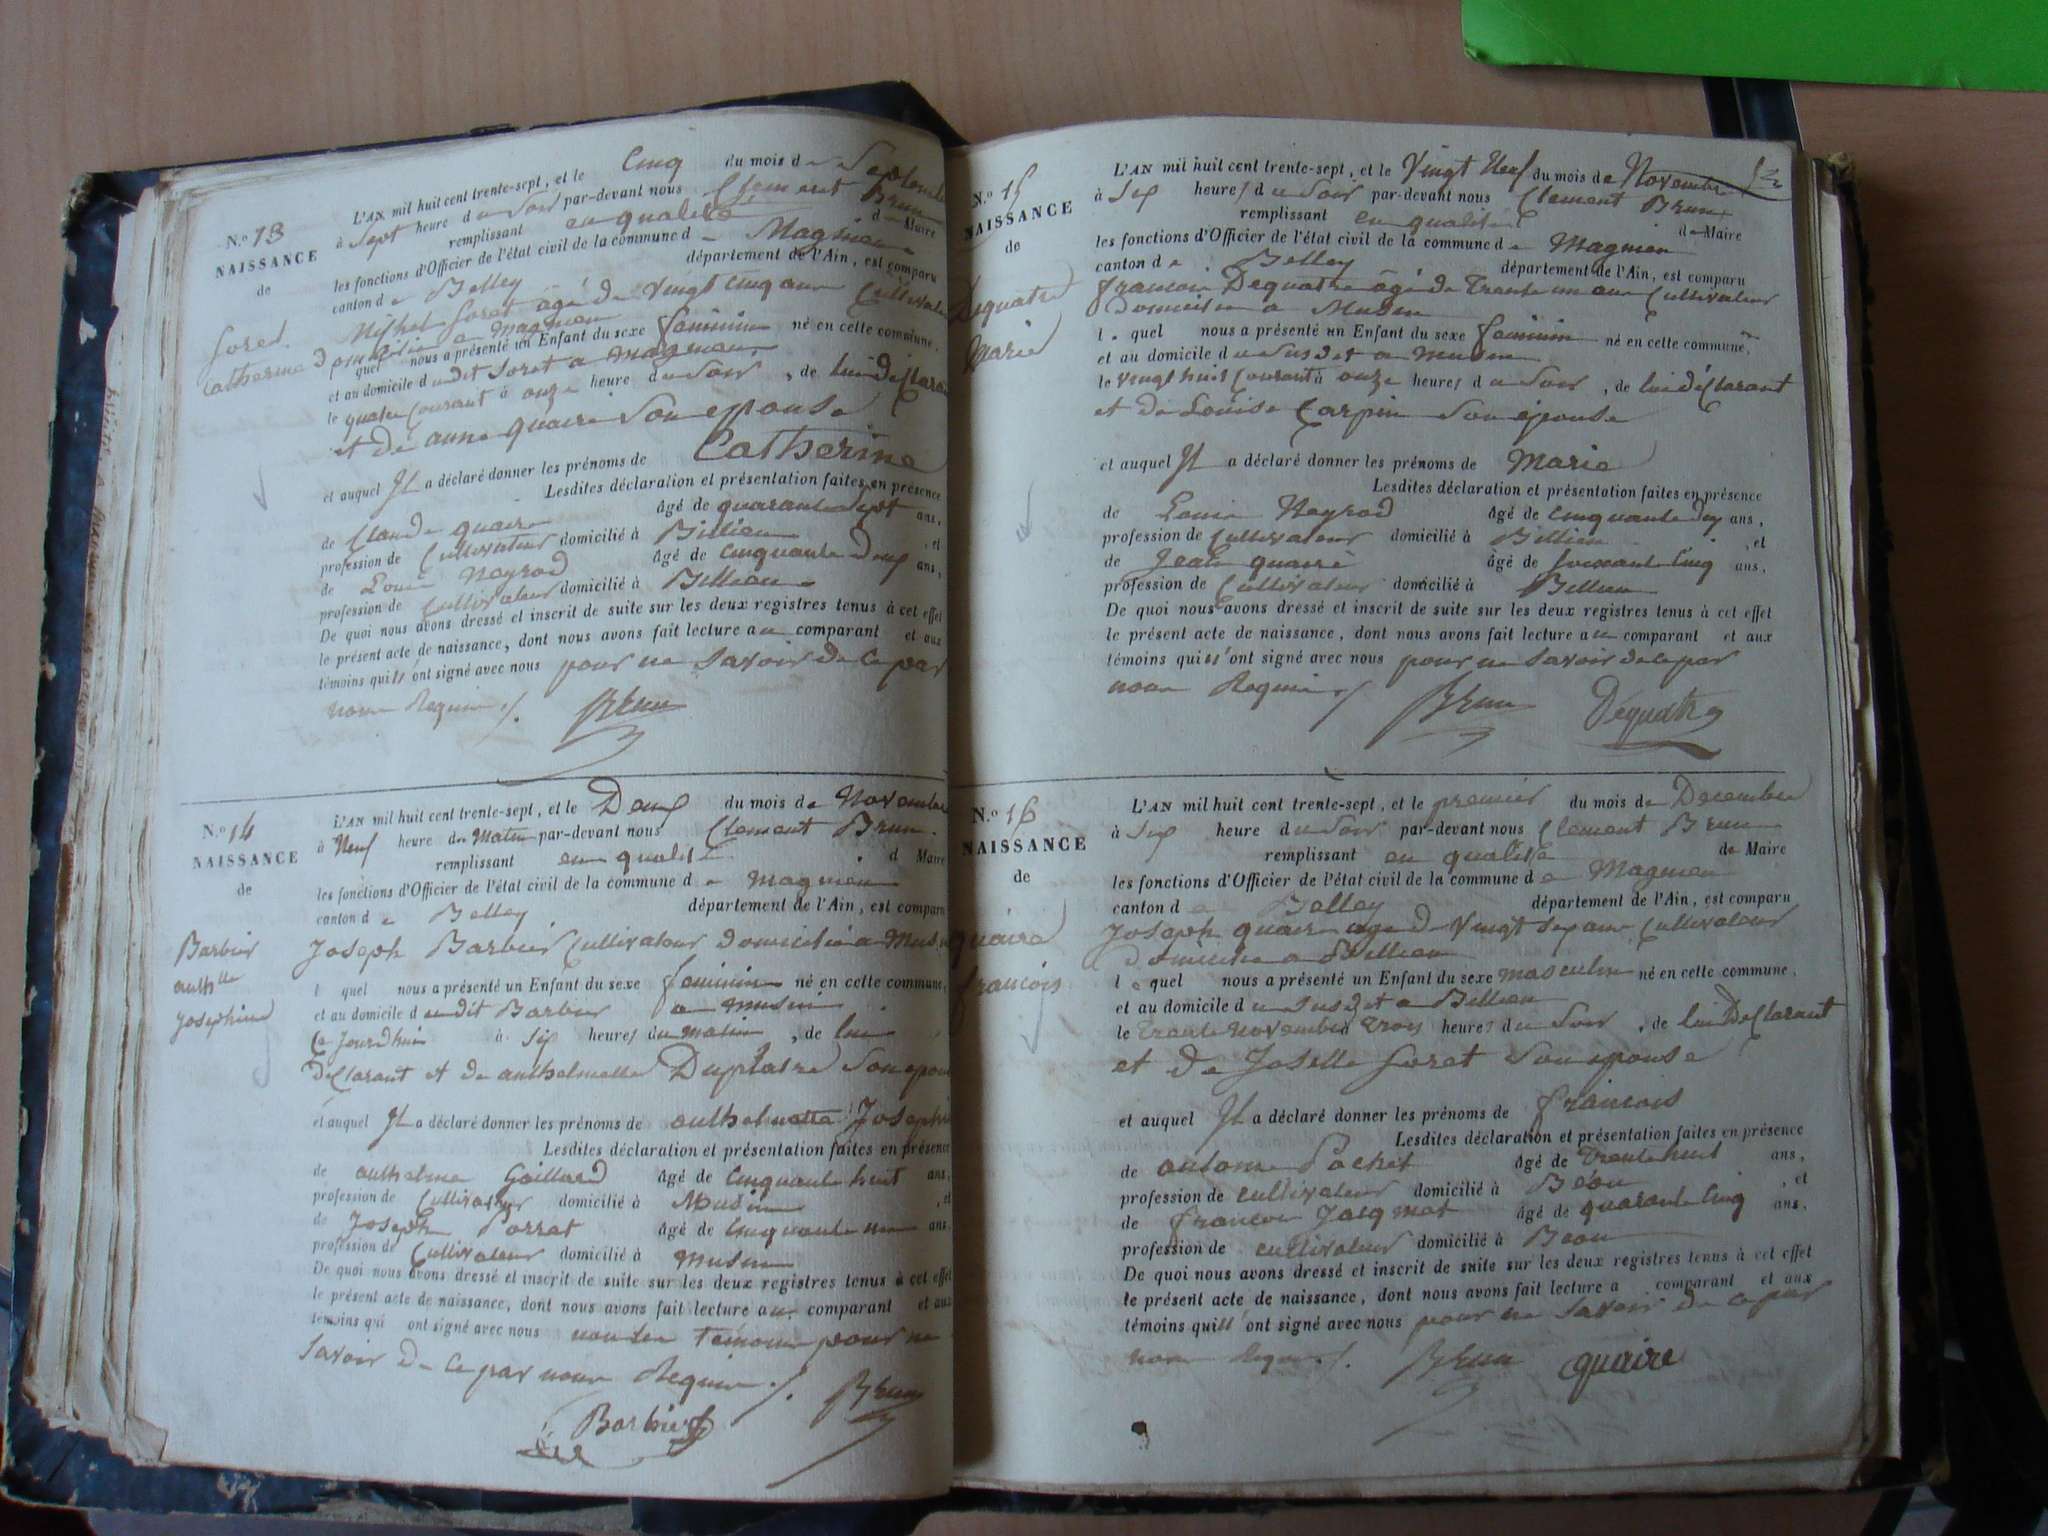 N.o 13
NAISSANCE
de
Soret
Catherine
L'AN mil huit cent trente-sept, et le Cinq du mois de Septembre
à Sept heure du Soir par-devant nous Clement Brun
remplissant en qualité de Maire
les fonctions d'Officier de l'état civil de la commune de Magnieu
canton de Belley département de l'Ain, est comparu
Michel Soret âgé de vingt cinq ans Cultivateur
domicilié a Magnieu
quel nous a présenté un Enfant du sexe feminin né en cette commune,
et au domicile dudit Soret a Magnieu
le quatre Courant à onze heure du Soir, de lui Déclarant
et de anne quaire Son epouse
et auquel Il a déclaré donner les prénoms de Catherine
Lesdites déclaration et présentation faites en présence
de Claude quaire âgé de quarante Sept ans,
profession de Cultivateur domicilié à Billieu, et
de Louis Neyrod âgé de Cinquante Deux ans,
profession de Cultivateur domicilié à Billieu
De quoi nous avons dressé et inscrit de suite sur les deux registres tenus à cet effet
le présent acte de naissance, dont nous avons fait lecture au comparant et aux
témoins qui n'ont signé avec nous pour ne Savoir de Ce par
nous Requis ./. Brun
N.o 14
NAISSANCE
de
Barbier
anth.lle
Josephine
L'AN mil huit cent trente-sept, et le Deux du mois de Novembre
à Neuf heure du Matin par-devant nous Clement Brun
remplissant en qualité d Maire
les fonctions d'Officier de l'état civil de la commune de Magnieu
canton de Belley département de l'Ain, est comparu
Joseph Barbier Cultivateur domicilié a Musin
l quel nous a présenté un Enfant du sexe feminin né en cette commune,
et au domicile dudit Barbier a Musin
Ce Jourdhui à Six heures du matin, de lui
déclarant et de anthelmette Duplatre Son epouse
et auquel Il a déclaré donner les prénoms de anthelmette Josephine
Lesdites déclaration et présentation faites en présence
de anthelme Gaillard âgé de Cinquante huit ans,
profession de Cultivateur domicilié à Musin, et
de Joseph Porret âgé de Cinquante un ans,
profession de Cultivateur domicilié à Musin
De quoi nous avons dressé et inscrit de suite sur les deux registres tenus à cet effet
le présent acte de naissance, dont nous avons fait lecture au comparant et aux
témoins qui ont signé avec nous non les Temoins pour ne
Savoir de Ce par nous Requis ./. Brun
Barbier
N.o 15
NAISSANCE
de
Dequatre
Marie
L'AN mil huit cent trente-sept, et le Vingt Neuf du mois de Novembre
à Six heures du Soir par-devant nous Clement Brun
remplissant en qualité de Maire
les fonctions d'Officier de l'état civil de la commune de Magnieu
canton de Belley département de l'Ain, est comparu
francois Dequatre âgé de Trente un ans Cultivateur
Domicilié a Musin
le quel nous a présenté un Enfant du sexe feminin né en cette commune,
et au domicile du Susdit a Musin
le vingt huit Courant à onze heures du Soir, de lui déclarant
et de Louise Carpin Son épouse
et auquel Il a déclaré donner les prénoms de Marie
Lesdites déclaration et présentation faites en présence
de Louis Neyrod âgé de Cinquante Deux ans,
profession de Cultivateur domicilié à Billieu, et
de Jean quaire âgé de Soixante Cinq ans,
profession de Cultivateur domicilié à Billieu
De quoi nous avons dressé et inscrit de suite sur les deux registres tenus à cet effet
le présent acte de naissance, dont nous avons fait lecture au comparant et aux
témoins qui n'ont signé avec nous pour ne Savoir de Ce par
nous Requis ./. Brun Déquatre
N.o 16
NAISSANCE
de
quaire
francois
L'AN mil huit cent trente-sept, et le premier du mois de Decembre
à Six heure du Soir par-devant nous Clement Brun
remplissant en qualité de Maire
les fonctions d'Officier de l'état civil de la commune de Magnieu
canton de Belley département de l'Ain, est comparu
Joseph quaire age de Vingt Six ans Cultivateur
Domicilié a Billieu
le quel nous a présenté un Enfant du sexe masculin né en cette commune,
et au domicile du Susdit a Billieu
le Trente Novembre à Trois heures du Soir, de lui Déclarant
et de Josette Soret Son epouse
et auquel Il a déclaré donner les prénoms de francois
Lesdites déclaration et présentation faites en présence
de antoine Pochet âgé de Trente huit ans,
profession de cultivateur domicilié à Béon, et
de francois Jacquet âgé de quarante Cinq ans,
profession de cultivateur domicilié à Béon
De quoi nous avons dressé et inscrit de suite sur les deux registres tenus à cet effet
le présent acte de naissance, dont nous avons fait lecture a comparant et aux
témoins qui n'ont signé avec nous pour ne Savoir de Ce par
nous Requis ./. Brun quaire